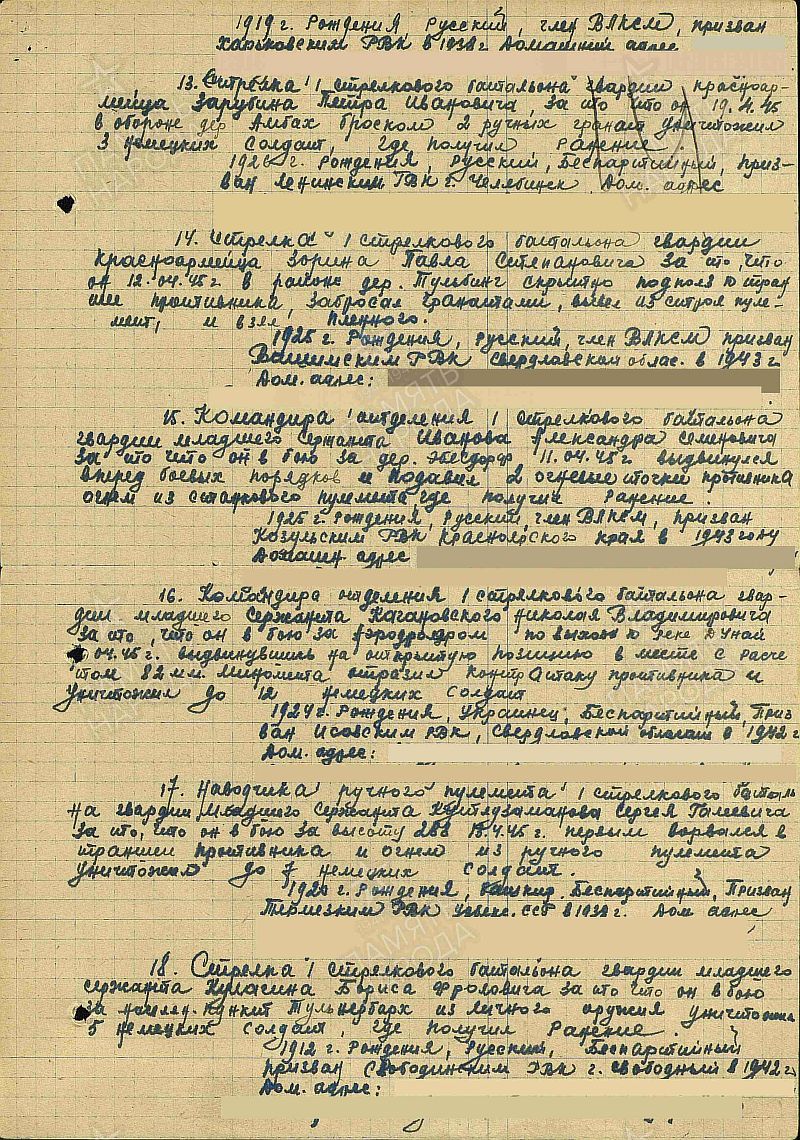 1919 г. Рождения, Русский, член ВЛКСМ, призван
Харьковским РВК в 1939 г Домашний адрес
13. Стрелка 1 стрелкового батальона гвардии красноар-
мейца Зарубина Петра Ивановича, за то что он 19.4.45
в обороне дер Амбах броском 2 ручных гранат уничтожил
3 немецких солдат, где получил ранение.
г. Рождения, Русский, Беспартийный, приз-
ван Ленинским РВК г. Челябинск Дом. адрес
14. Стрелка 1 стрелкового батальона гвардии
Красноармейца Зорина Павла Степановича за то, что
он 12.04.45 г. в районе дер. Тульбинг скрытно подполз к тран
шее противника, забросал гранатами, вывел из строя пуле-
мет, и взял пленного.
1925 г. Рождения, Русский, член ВЛКСМ призван
РВК Свердловской облас. в 1943 г
Дом. адрес:
15. Командира отделения 1 стрелкового батальона
гвардии младшего сержанта Иванова Александра Семеновича
За то что он в бою за дер. 11.04.45 г. выдвинулся
вперед боевых порядков и подавил 2 огневые точки противника
огнем из станкового пулемета, где получил ранение.
1925 г. Рождения, Русский, член ВЛКСМ, призван
Козульским РВК Красноярского края в 1943 году
Домашн адрес
16. Командира отделения 1 стрелкового батальона гвар-
дии младшего сержанта Кагановского Николая Владимировича
За то, что он в бою за по выходу к реке Дунай
04.45 г. выдвинувшись на открытую позицию в месте с расче
том 82 мм. миномета отразил контратаку противника и
уничтожил до 12 немецких солдат
1924 г. Рождения, Украинец, Беспартийный, Приз
ван Исовским РВК, Свердловской области в 1942 г
Дом. адрес:
17. Наводчика ручного пулемета 1 стрелкового баталь
на гвардии младшего сержанта Кутлузаманова Сергея Галеевича
За то, что он в бою за высоту 4.45 г. первым ворвался в
траншеи противника и огнем из ручного пулемета
уничтожил до 7 немецких солдат.
г. Рождения, Беспартийный, Призван
Термезким РВК Узбекс. ССР в 1939 г. Дом адрес
18. Стрелка 1 стрелкового батальона гвардии младшего
сержанта Кулагина Бориса Фроловича за то что он в бою
за населед. пункт Тульнербах из личного оружия уничтожил
5 немецких солдат, где получил ранение.
1912 г. Рождения, Русский, Беспартийный
призван Свободинским РВК г. Свободный в 1942 г
Дом. адрес: